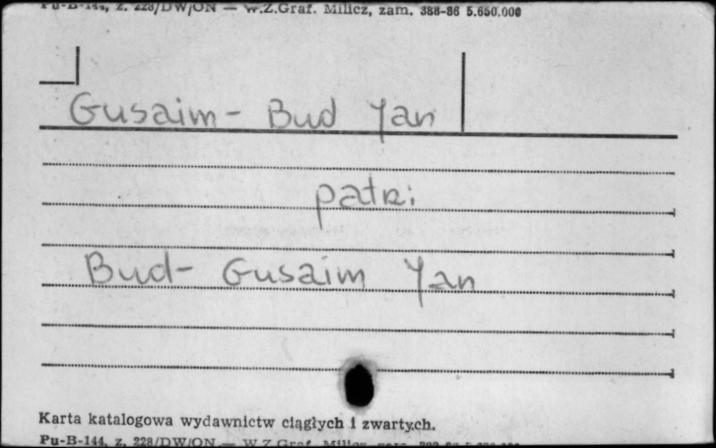 Pu-B-144, z. 228/DW/ON — W.Z.Graf. Milicz, zam. 388-86 5.650.000
Gusaim- Bud Jan
patri
Bud- Gusaim Jan
Karta katalogowa wydawnictw ciągłych i zwartych.
Pu-B-144, z. 228/DW/ON — W.Z.Graf. Milicz, zam.